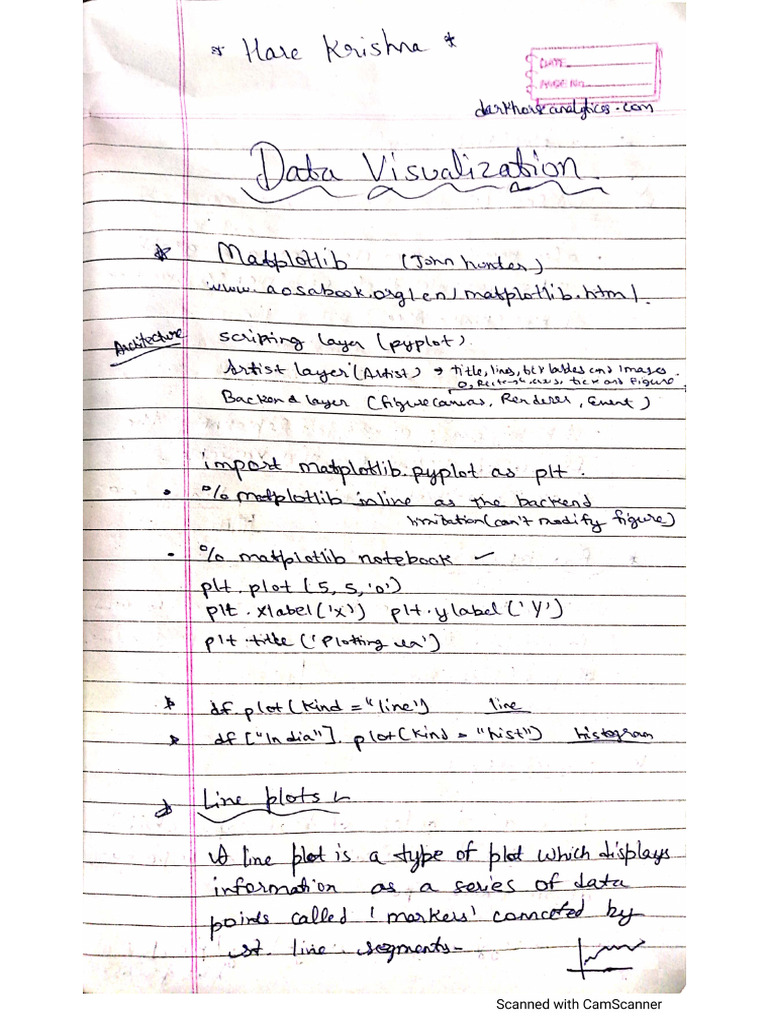 * Hare Krishna *
DATE
PAGE NO.
darkhorseanalytics.com
Data Visualization
* Matplotlib (John hunter)
www.aosabook.org/en/matplotlib.html.
Architecture
scripting layer (pyplot).
Artist layer (Artist) → Title, lines, tick lables and images.
O, Rectangle, axes, tick and Figure
Backend layer (figurecanvas, Renderer, Event)
import matplotlib.pyplot as plt.
• % matplotlib inline as the backend
limitation (can't modify figure)
• % matplotlib notebook ✓
plt.plot (5, 5, 'o')
plt.xlabel('x') plt.ylabel('Y')
plt.title ('Plotting ex')
* df.plot(kind = "line') line
* df ["India"]. plot(kind = "hist") histogram
Line plots
A line plot is a type of plot which displays
information as a series of data
points called 'markers' connceted by
st. line segments-
Scanned with CamScanner